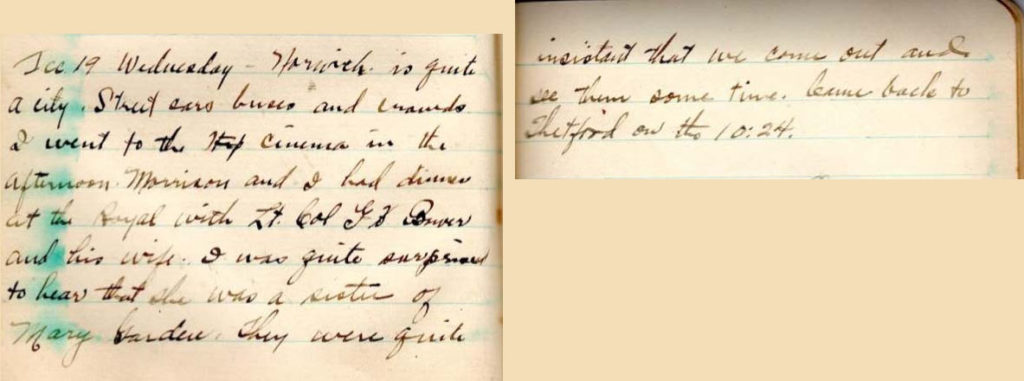 Dec 19 Wednesday - Norwich is quite
a city. Street cars buses and crowds
I went to the cinema in the
afternoon. Morrison and I had dinner
at the Royal with Lt. Col G
and his wife. I was quite surprised
to hear that she was a sister of
Mary Garden. They were quite
insistant that we come out and
see them some time. Came back to
Thetford on the 10:24.